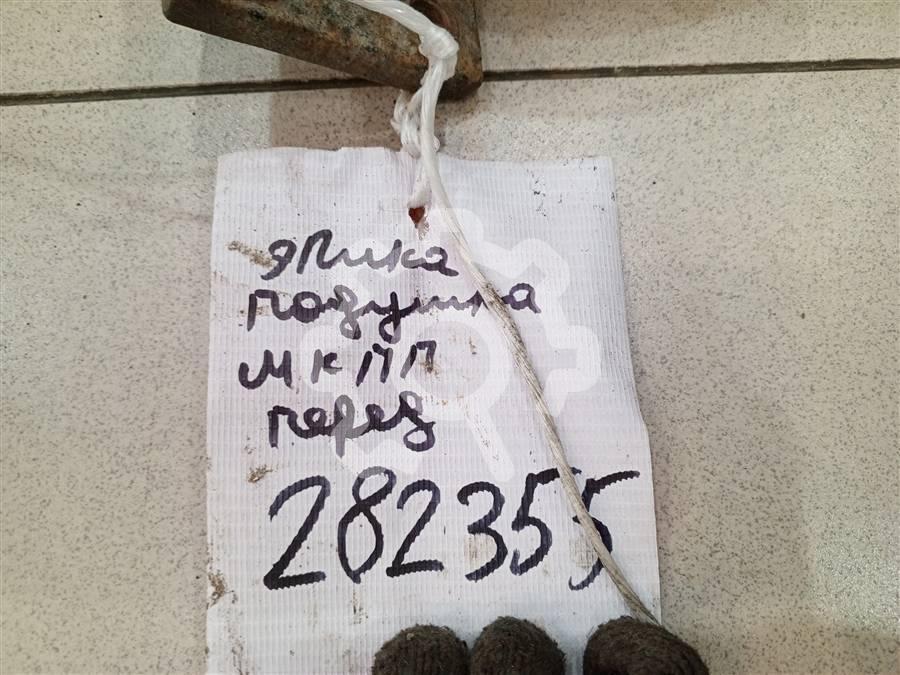 эпика
подушка
МКПП
перед
282355